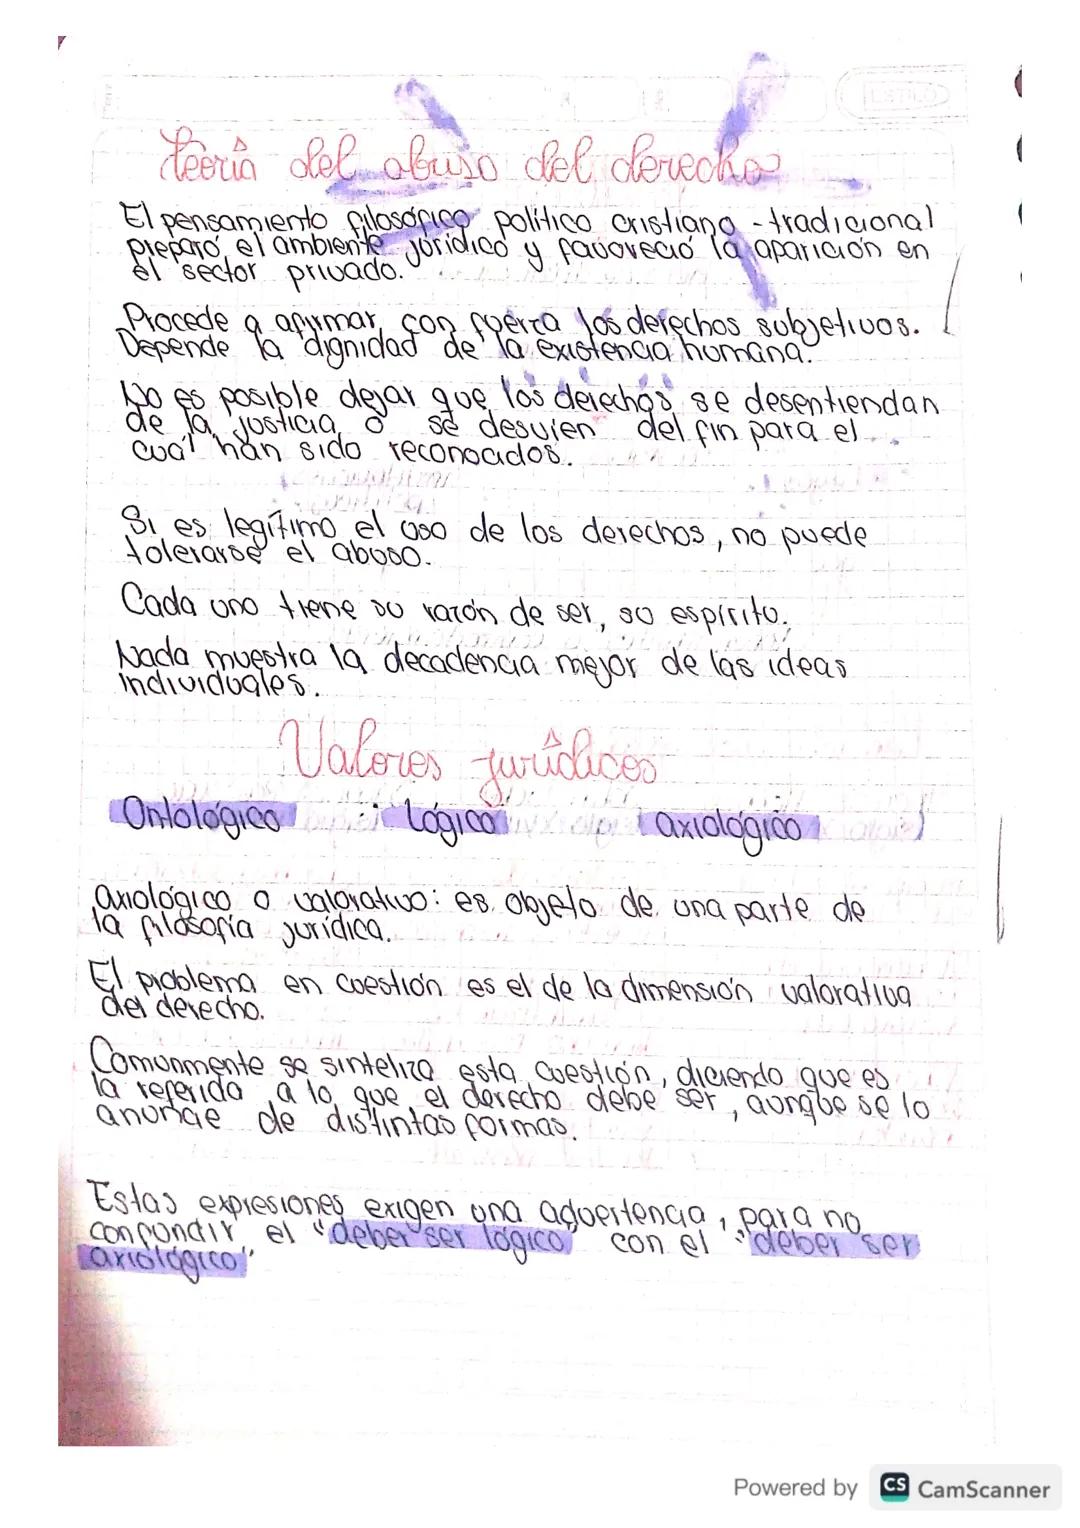 ESTILO
Teoría del abuso del derecho
El pensamiento filosófico político cristiano - tradicional
preparó el ambiente jurídico y favoreció la aparición en
el sector privado.
Procede a afirmar con fuerza los derechos subjetivos.
Depende la dignidad de la existencia humana.
No es posible dejar que los derechos se desentiendan
de la justicia o se desvíen del fin para el
cual han sido reconocidos.
Si es legítimo el uso de los derechos, no puede
tolerarse el abuso.
Cada uno tiene su razón de ser, su espíritu.
Nada muestra la decadencia mejor de las ideas
individuales.
Valores jurídicos
Ontológico Lógico axiológico
axiológico o valorativo: es objeto de una parte de
la filosofía jurídica.
El problema en cuestión es el de la dimensión valorativa
del derecho.
Comunmente se sinteliza esta cuestión, diciendo que es
la referida a lo que el derecho debe ser, aunque se lo
anuncie de distintas formas.
Estas expresiones exigen una advertencia, para no
confundir el "deber ser lógico" con el "deber ser
axiológico"
Powered by CS CamScanner